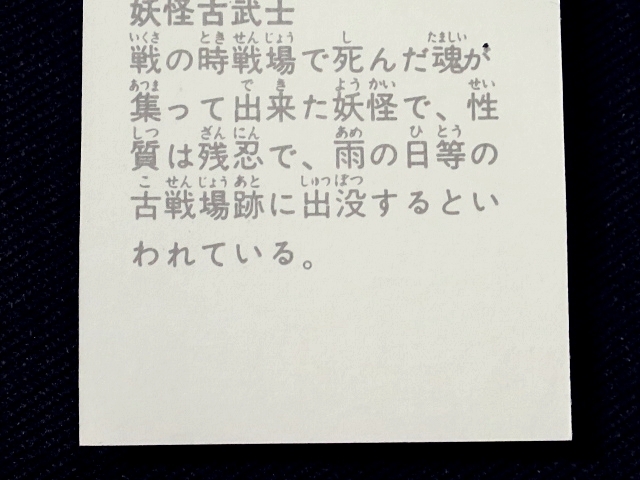 妖怪古武士
戦の時戦場で死んだ魂が
集って出来た妖怪で、性
質は残忍で、雨の日等の
古戦場跡に出没するとい
われている。